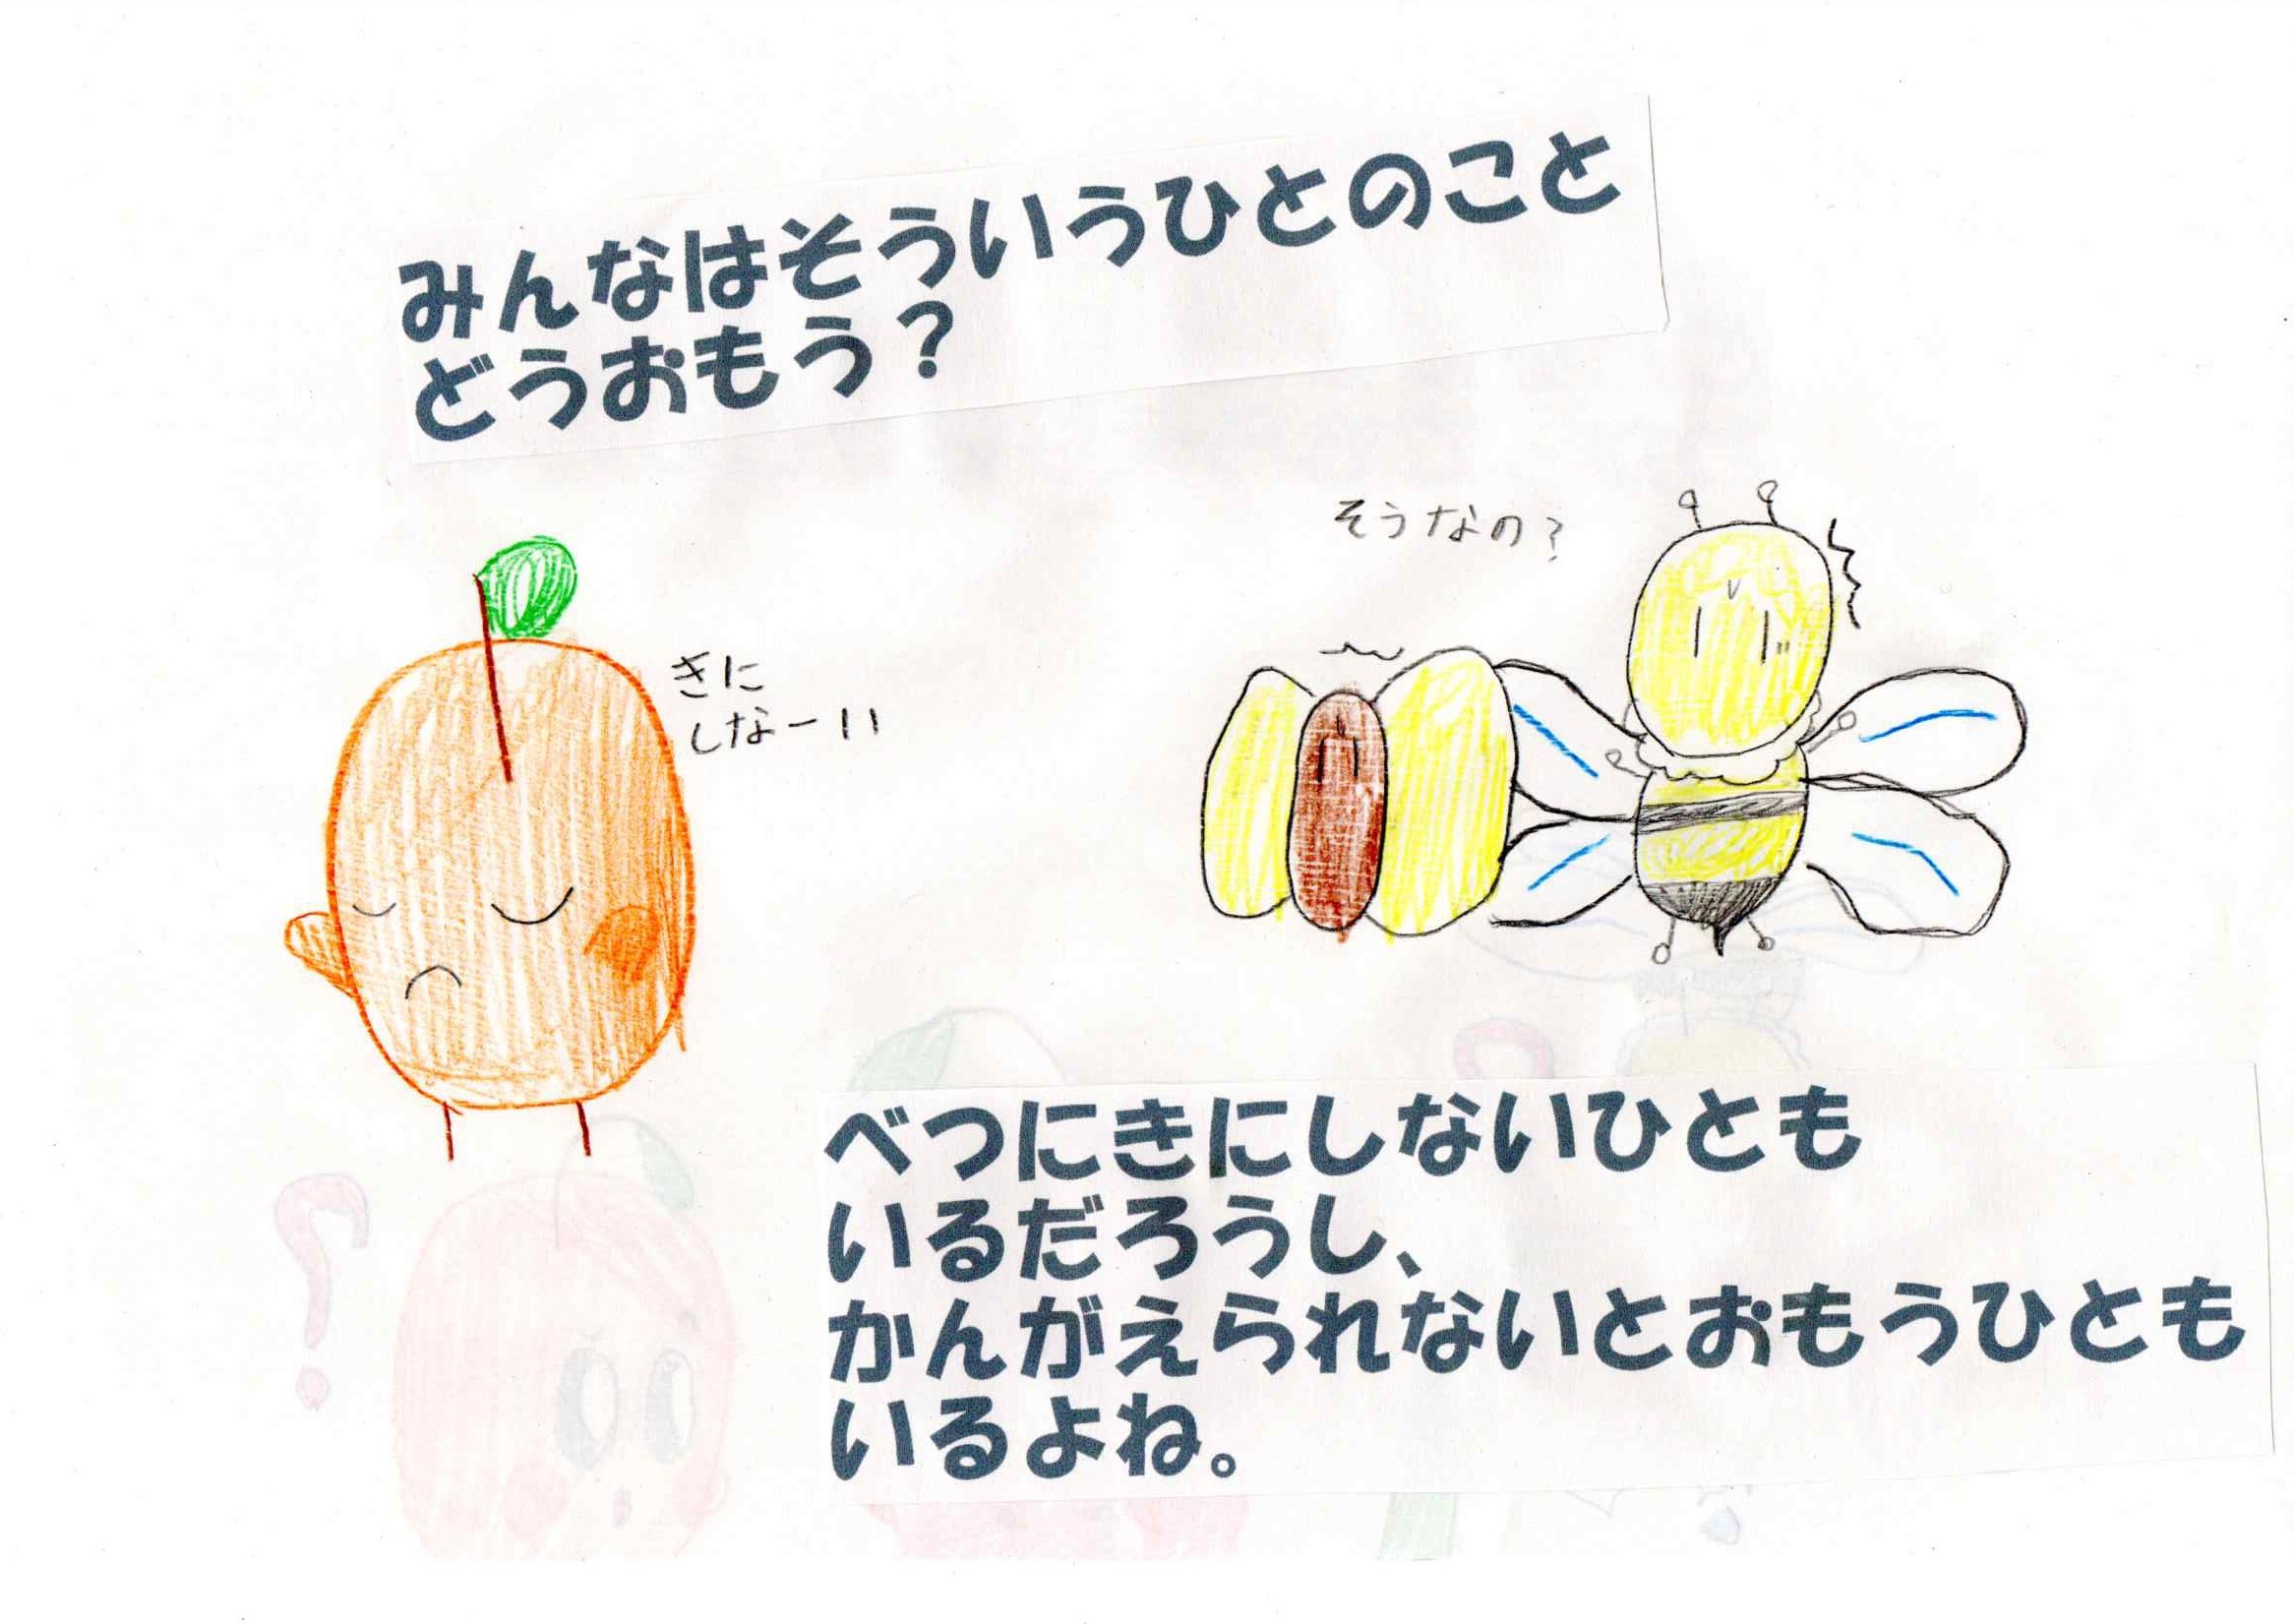 みんなはそういうひとのこと
どうおもう？
そうなの？
きに
しなーい
べつにきにしないひとも
いるだろうし、
かんがえられないとおもうひとも
いるよね。